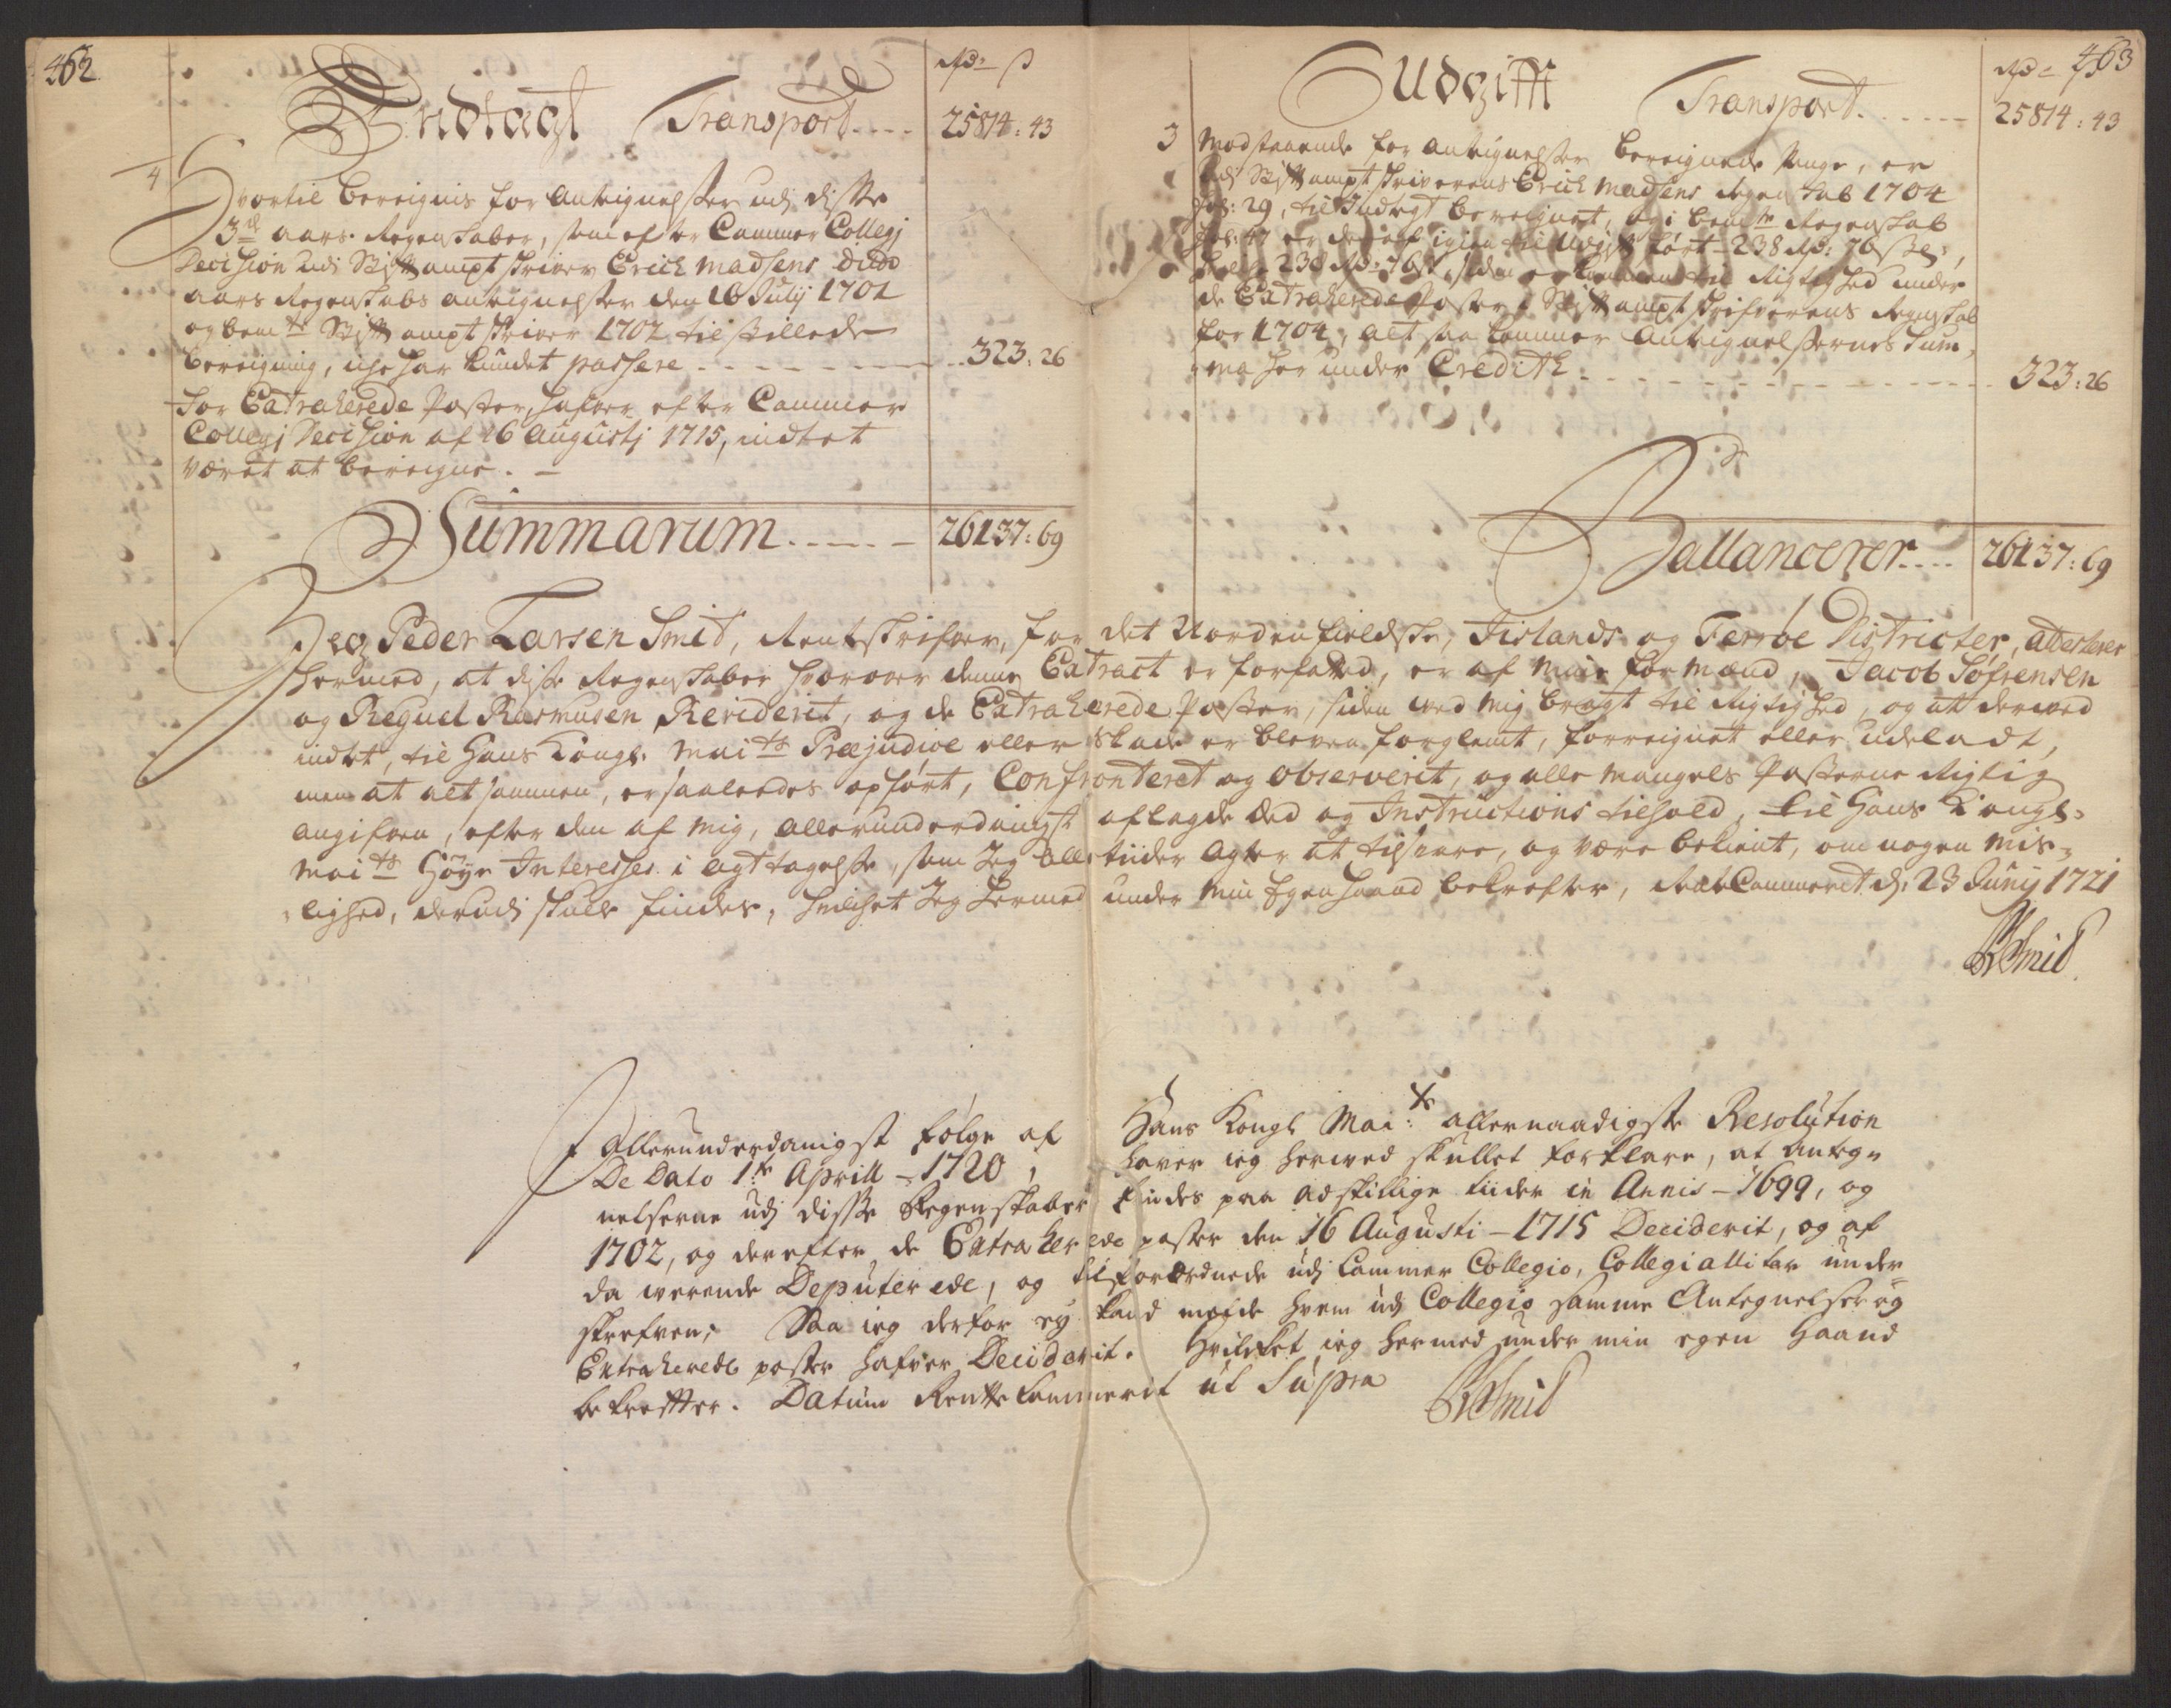 462
Rd: ß
Indtægt Transport.... 25814: 43
4
Hvortil bereignis for Antegnelser udi disse
3de aars Regenskaber, som efter Cammer Collegj
Decision udi Stiftamptskriver Erich Madsens dido
aars Regenskabs antegnelser den 16 Julij 1701
og bemte Stiftamptskriver 1702 tilstillede
bereigning, iche har kundet passere ....... 323: 26
For Extraherede Poster, hafver efter Cammer
Collegj Decision af 16 Augustj 1715, indtet
været at bereigne. –
Summarum...... 26137: 69
463
Rd: ß
Udgifft Transport...... 25814: 43
3
Modstaaende for antegnelser bereignede Penge, er
udi Stiftamptskriverens Erich Madsens Regenskab 1704
fol: 29, til Indtegt bereignet, og i bemte Regenskab
fol: 47 er deraf igien til Udgift ført 238 Rd: 76 ß
238 Rd: 76 ß, siden er kommen til Rigtighed under
de Extraherede Poster i Stiftamptskrifverens Regenskab
for 1704, alt saa kommer Antegnelsernes Sum,
ma her under Credith ........ 323: 26
Ballancerer.... 26137: 69
Jeg Peder Larsen Smid, Rentskrifver, for det Nordenfieldske, Jislands og Ferröe Districter, attesterer
hermed, at disse Regenskaber hvorover denne Extract er forfatted, er af mine formænd, Jacob Söfrensen
og Reguel Rasmusen Reviderit, og de Extraherede Poster, siden ved mig bragt til Rigtighed, og at derved
indtet, til Hans Kongl. Maits Præjudice eller skade er bleven forglemt, forreignet eller udeladt,
men at alt sammen, er saaleedes opført, Confronteret og observerit, og alle mangels Posterne Rigtig
angifven, efter den af mig, allerunderdanigst aflagde Eed og Instructions tilhold, til Hans Kongl.
Maits Höye Interesses i agt tagelse, som Jeg alle tiider agter at tilsvare, og være bekient, om nogen mis-
lighed, derudj skulle findes, hvilket Jeg hermed under min Egen haand bekrefter, RenteCammeret d: 23 Junij 1721
PLSmid
Allerunderdanigst følge af Hans Kongl Mai:ts allernaadigste Resolution
De Dato 1te Aprill – 1720, haver ieg herved skullet forklare, at anteg-
nelserne udj disse Regenskaber findes paa adskillige tiider in Annis – 1699, og
1702, og derefter de Extraherede poster den 16 Augusti – 1715 Deciderit, og af
da werende Deputerede, og tilforordnede udj Cammer Collegio, Collegialliter under
skrefven; Saa ieg derfor ey kand melde hvem udj Collegio samme Antegnelser og
Extraherede poster hafver Deciderit. Hvilcket ieg hermed under min egen Haand
bekreffter. Datum Rentekammerit ut Supra
PLSmid